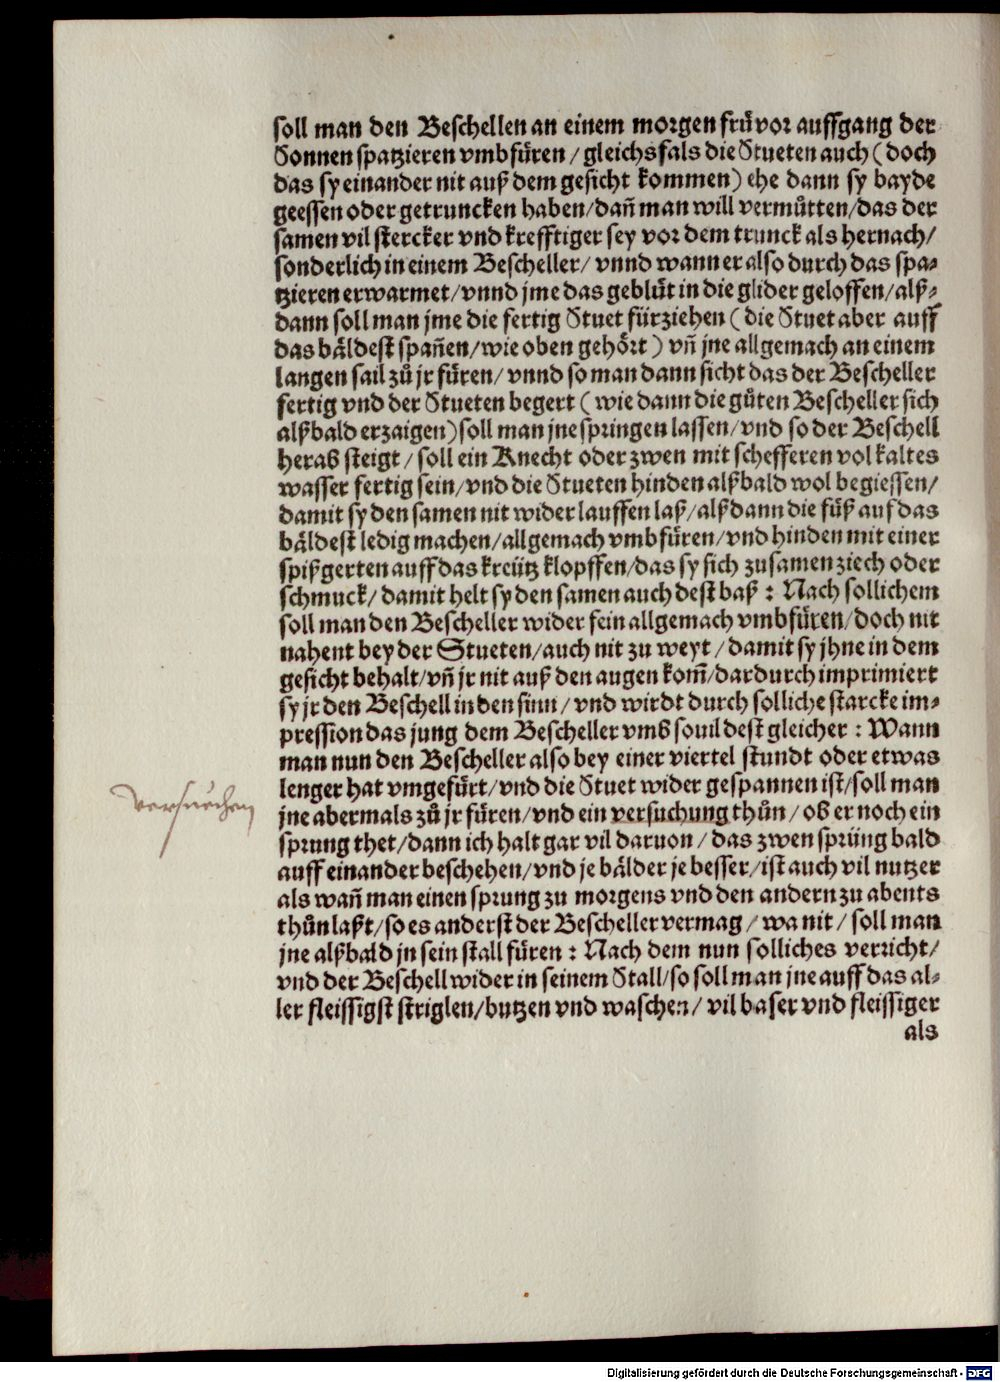 soll man den Beschellen an einem morgen frü vor auffgang der
Sonnen spatzieren vmbfüren / gleichsfals die Stueten auch ( doch
das sy einander nit auß dem gesicht kommen ) ehe dann sy bayde
geessen oder getruncken haben / dañ man will vermůtten / das der
samen vil stercker vnd krefftiger sey vor dem trunck als hernach /
sonderlich in einem Bescheller / vnnd wann er also durch das spa⸗
tzieren erwarmet / vnnd jme das geblüt in die glider geloffen / alß⸗
dann soll man jme die fertig Stuet fürziehen ( die Stuet aber auff
das bäldest spañen / wie oben gehört ) vñ jne allgemach an einem
langen sail zů jr füren / vnnd so man dann sicht das der Bescheller
fertig vnd der Stueten begert ( wie dann die gůten Bescheller sich
alßbald erzaigen ) soll man jne springen lassen / vnd so der Beschell
herab steigt / soll ein Knecht oder zwen mit schefferen vol kaltes
wasser fertig sein / vnd die Stueten hinden alßbald wol begiessen /
damit sy den samen nit wider lauffen laß / alß dann die füß auf das
bäldest ledig machen / allgemach vmbfüren / vnd hinden mit einer
spißgerten auff das kreütz klopffen / das sy sich zusamen ziech oder
schmuck / damit helt sy den samen auch dest baß : Nach sollichem
soll man den Bescheller wider fein allgemach vmbfüren / doch nit
nahent bey der Stueten / auch nit zu weyt / damit sy jhne in dem
gesicht behalt / vñ jr nit auß den augen kom̃ / dardurch imprimiert
sy jr den Beschell in den sinn / vnd wirdt durch solliche starcke im⸗
pression das jung dem Bescheller vmb souil dest gleicher : Wann
man nun den Bescheller also bey einer viertel stundt oder etwas
lenger hat vmgefürt / vnd die Stuet wider gespannen ist / soll man
versuechen
jne abermals zů jr füren / vnd ein versuchung thůn / ob er noch ein
sprung thet / dann ich halt gar vil daruon / das zwen sprüng bald
auff einander beschehen / vnd je bälder je besser / ist auch vil nutzer
als wañ man einen sprung zu morgens vnd den andern zu abents
thůn laßt / so es anderst der Bescheller vermag / wa nit / soll man
jne alßbald jn sein stall füren : Nach dem nun solliches verricht /
vnd der Beschell wider in seinem Stall / so soll man jne auff das al⸗
ler fleissigst striglen / butzen vnd waschen / vil baser vnd fleissiger
als
Digitalisierung gefördert durch die Deutsche Forschungsgemeinschaft - DFG